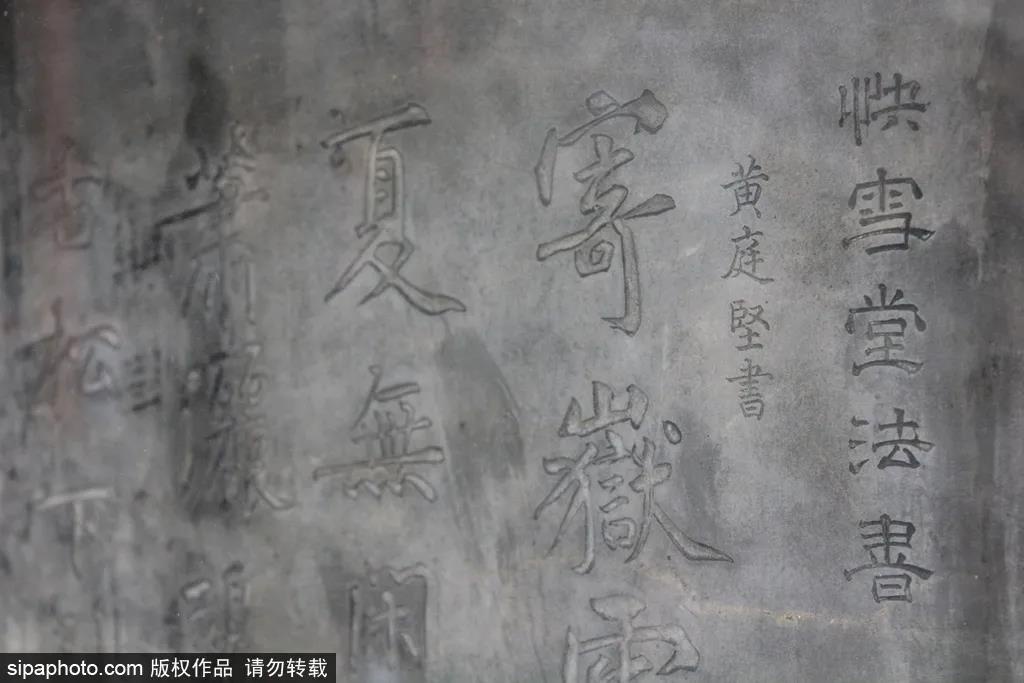 快雪堂法書
黃庭堅書
寄嶽雲
夏無閑
七松下
sipaphoto.com 版权作品 请勿转载